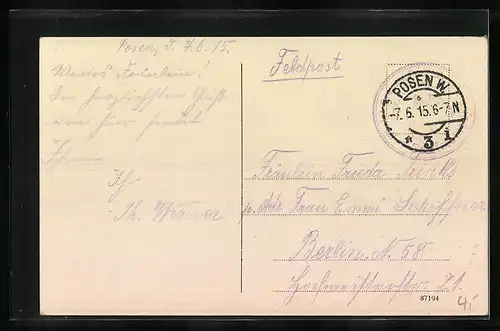 Posen, d. 7.6.15.
Wertes Fräulein!
Den herzlichsten Gruß
von hier sendet
Ihnen
Ihr
Th. Werner
Feldpost
POSEN W.
-7.6.15.6-7N
* 3 i
Fräulein Frieda
p. Adr. Frau Emmi
Berlin N. 58
Hochmeisterstr. 21.
87194
4,-